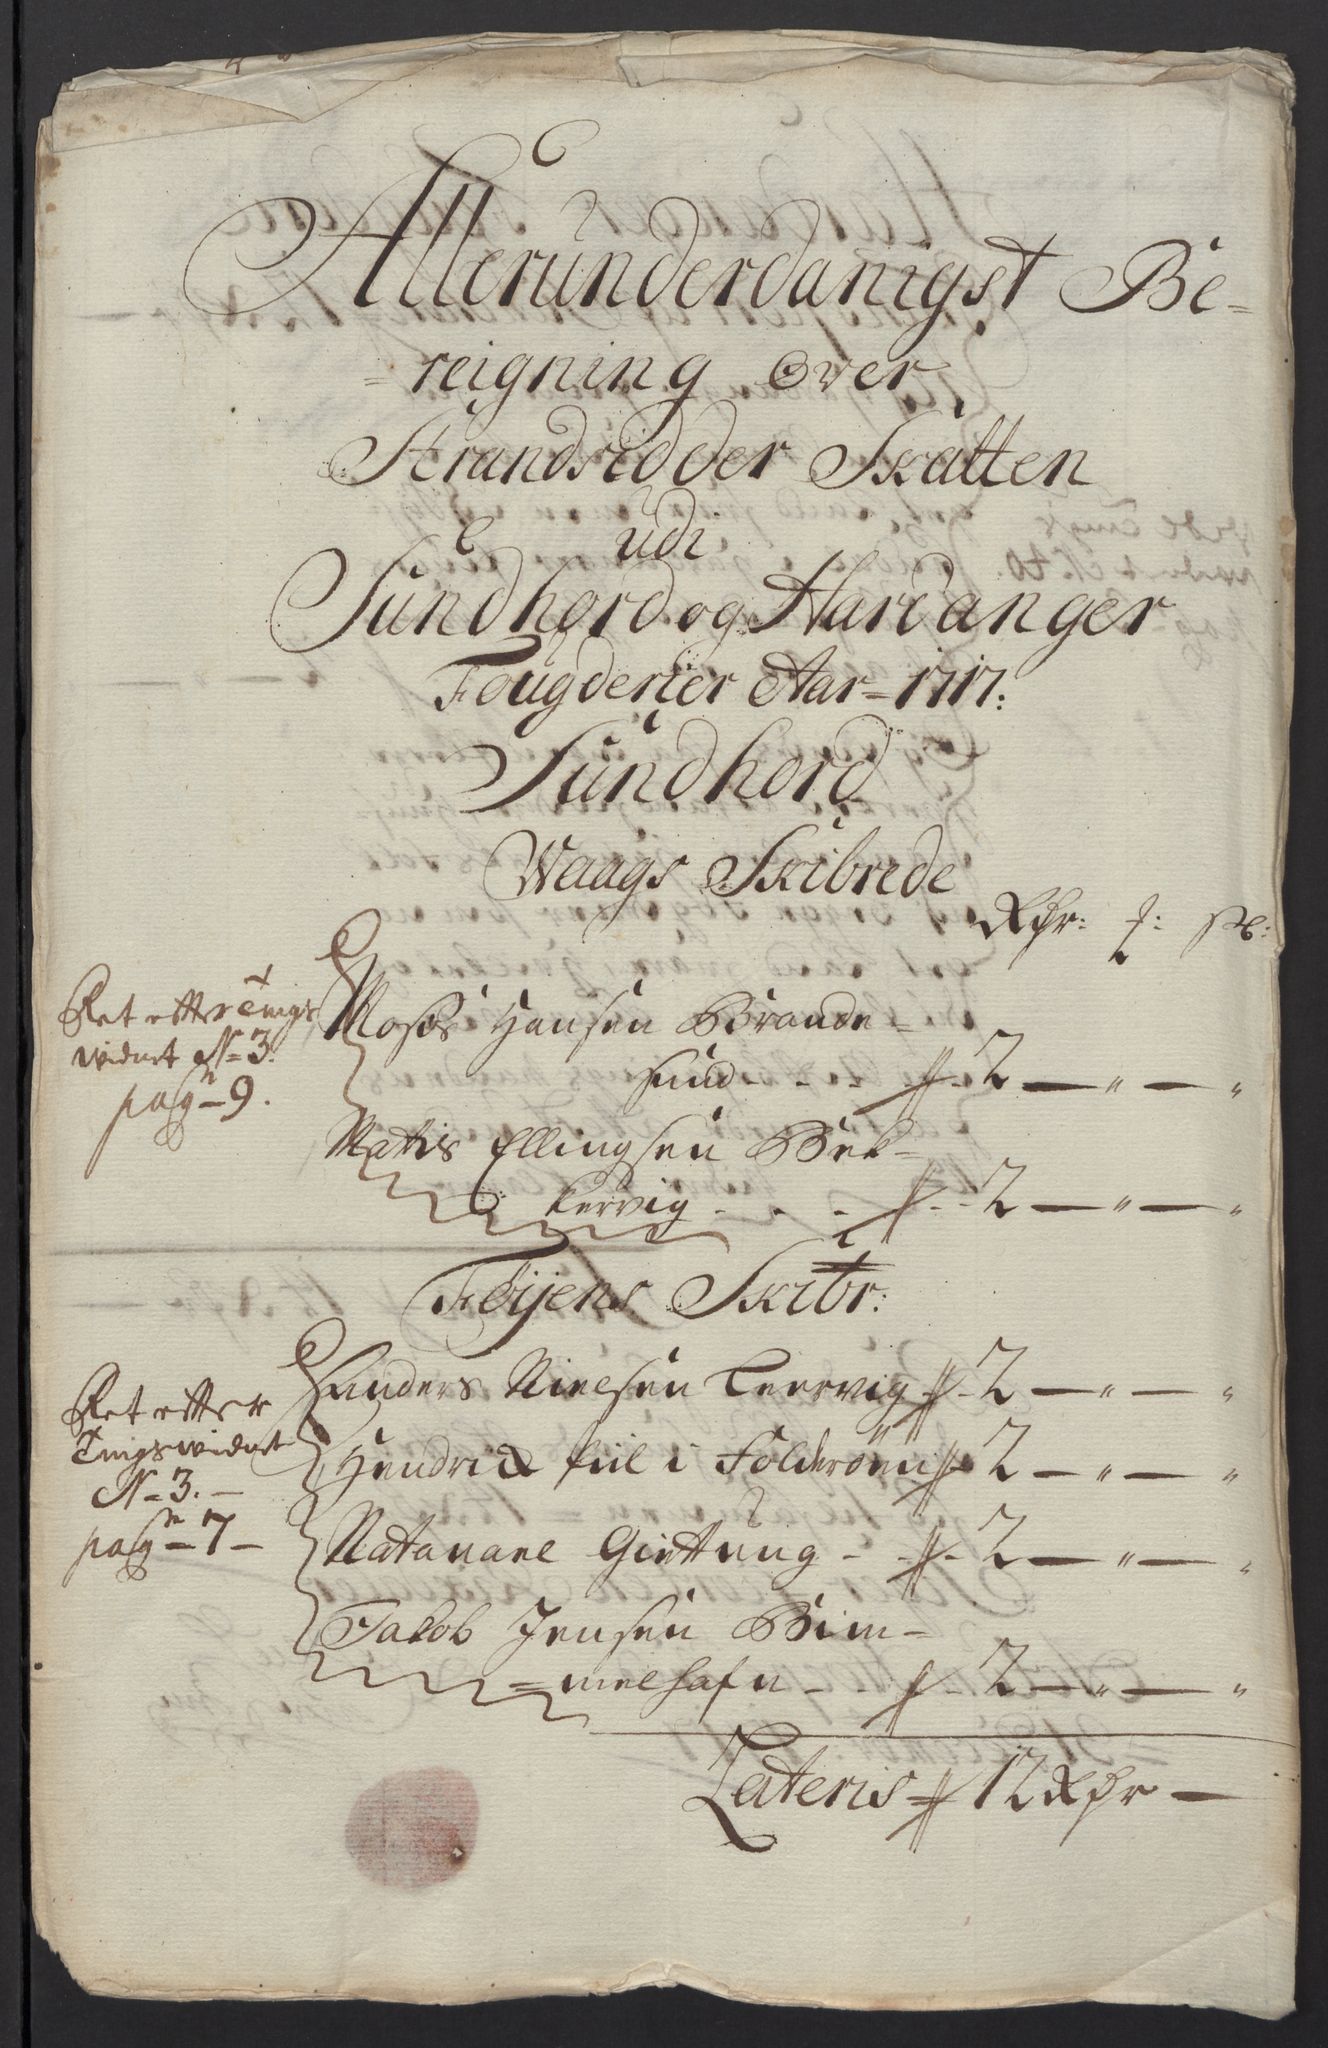 Allerunderdanigst Be-
=reigning over
Strandsidder Skatten
udi
Sundhord og Hardanger
Fougderier Aar = 1717:
Sundhord
Waags Skibrede
Rdr: ƶ: sk:
Ret etter Tings
widnet No 3.
pagn 9.
Moses Hansen Brande=
sund - - - 2 — " — "
Mattis Ellingsen Bek=
kervig - - - 2 — " — "
Føyens Skibr:
Ret etter
Tingswidnet
No 3. —
pagn 7 —
Anders Nielsen Leervig - 2 — " — "
Hendrick Piil i Folderøen - 2 — " — "
Natanael Giettung - - 2 — " — "
Jacob Jensen Bim=
=melhafn - - 2 — " — "
Lateris = 12 Rdr —